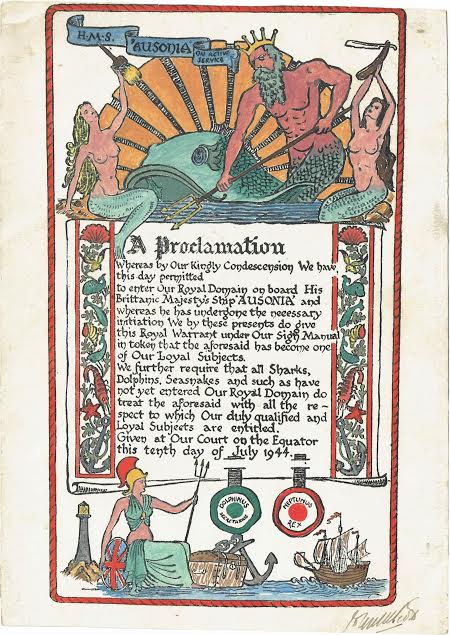 H.M.S.
"AUSONIA"
ON ACTIVE
SERVICE
A Proclamation
Whereas by Our Kingly Condescension We have
this day permitted
to enter Our Royal Domain on board His
Brittanic Majesty's Ship "AUSONIA" and
whereas he has undergone the necessary
initiation We by these presents do give
this Royal Warrant under Our Sign Manual
in token that the aforesaid has become one
of Our Loyal Subjects.
We further require that all Sharks,
Dolphins, Seasnakes and such as have
not yet entered Our Royal Domain do
treat the aforesaid with all the re-
spect to which Our duly qualified and
Loyal Subjects are entitled.
Given at Our Court on the Equator
this tenth day of July 1944.
DOLPHINUS
NEPTUNUS
REX